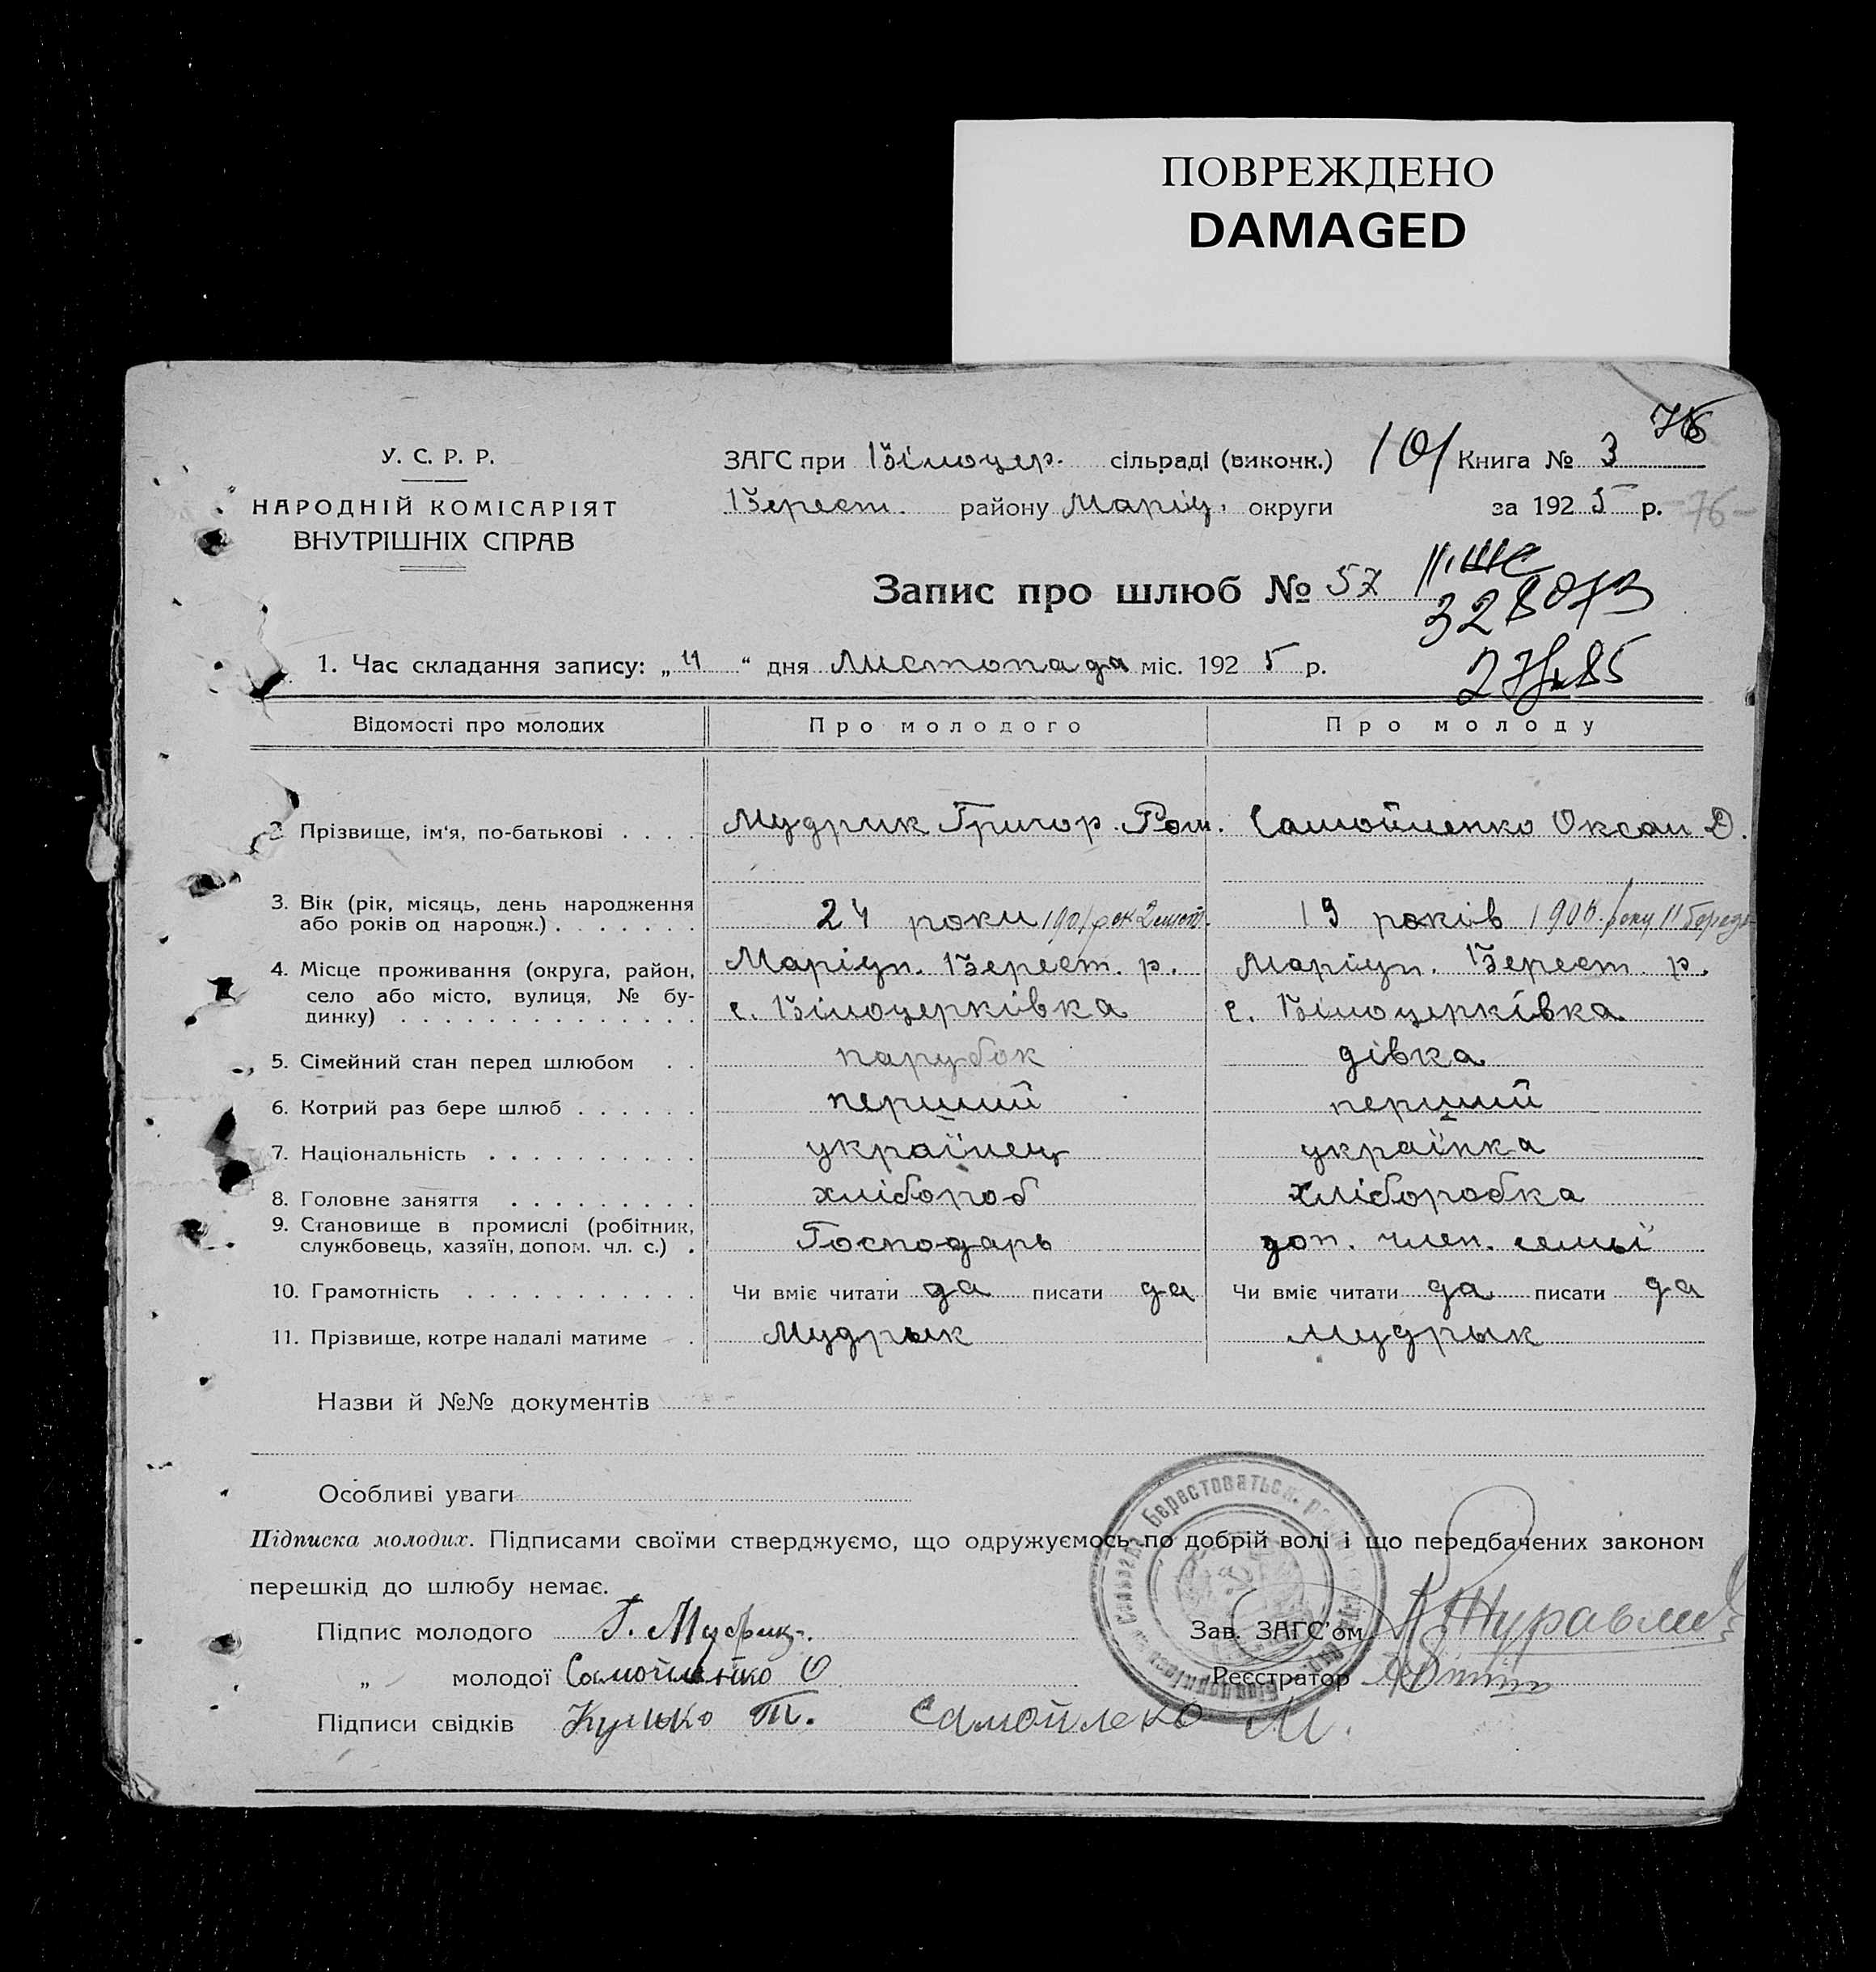 ПОВРЕЖДЕНО
DAMAGED
76
У. С. Р. Р.
НАРОДНІЙ КОМІСАРІЯТ
ВНУТРІШНІХ СПРАВ
ЗАГС при Білоцер. сільраді (виконк.) 101 Книга № 3
Берест. району Маріу. округи за 1925 р. -76-
Запис про шлюб № 57
328073
1. Час складання запису: „11“ дня Листопада міс. 1925 р.
Відомості про молодих Про молодого Про молоду
2. Прізвище, ім'я, по-батькові Мудрик Григор. Ром. Самойленко Оксан Д.
3. Вік (рік, місяць, день народження
або років од народж.) 24 роки 1901 19 років 1906 року 11
4. Місце проживання (округа, район,
село або місто, вулиця, № бу-
динку)
Маріуп. Берест. р. Маріуп. Берест. р.
с. Білоцерківка с. Білоцерківка
5. Сімейний стан перед шлюбом парубок дівка
6. Котрий раз бере шлюб перший перший
7. Національність українець українка
8. Головне заняття хлібороб хліборобка
9. Становище в промислі (робітник,
службовець, хазяїн, допом. чл. с.) Господарь доп. член. семьї
10. Грамотність Чи вміє читати да писати да Чи вміє читати да писати да
11. Прізвище, котре надалі матиме Мудрык Мудрык
Назви й №№ документів
Особливі уваги
Підписка молодих. Підписами своїми стверджуємо, що одружуємось по добрій волі і що передбачених законом
перешкід до шлюбу немає.
Підпис молодого Г. Мудрик Зав. ЗАГС'ом Журавль
„ молодої Самойленко О Реєстратор
Підписи свідків Кулико Т. Самойлеко М.
Берестоватьск.